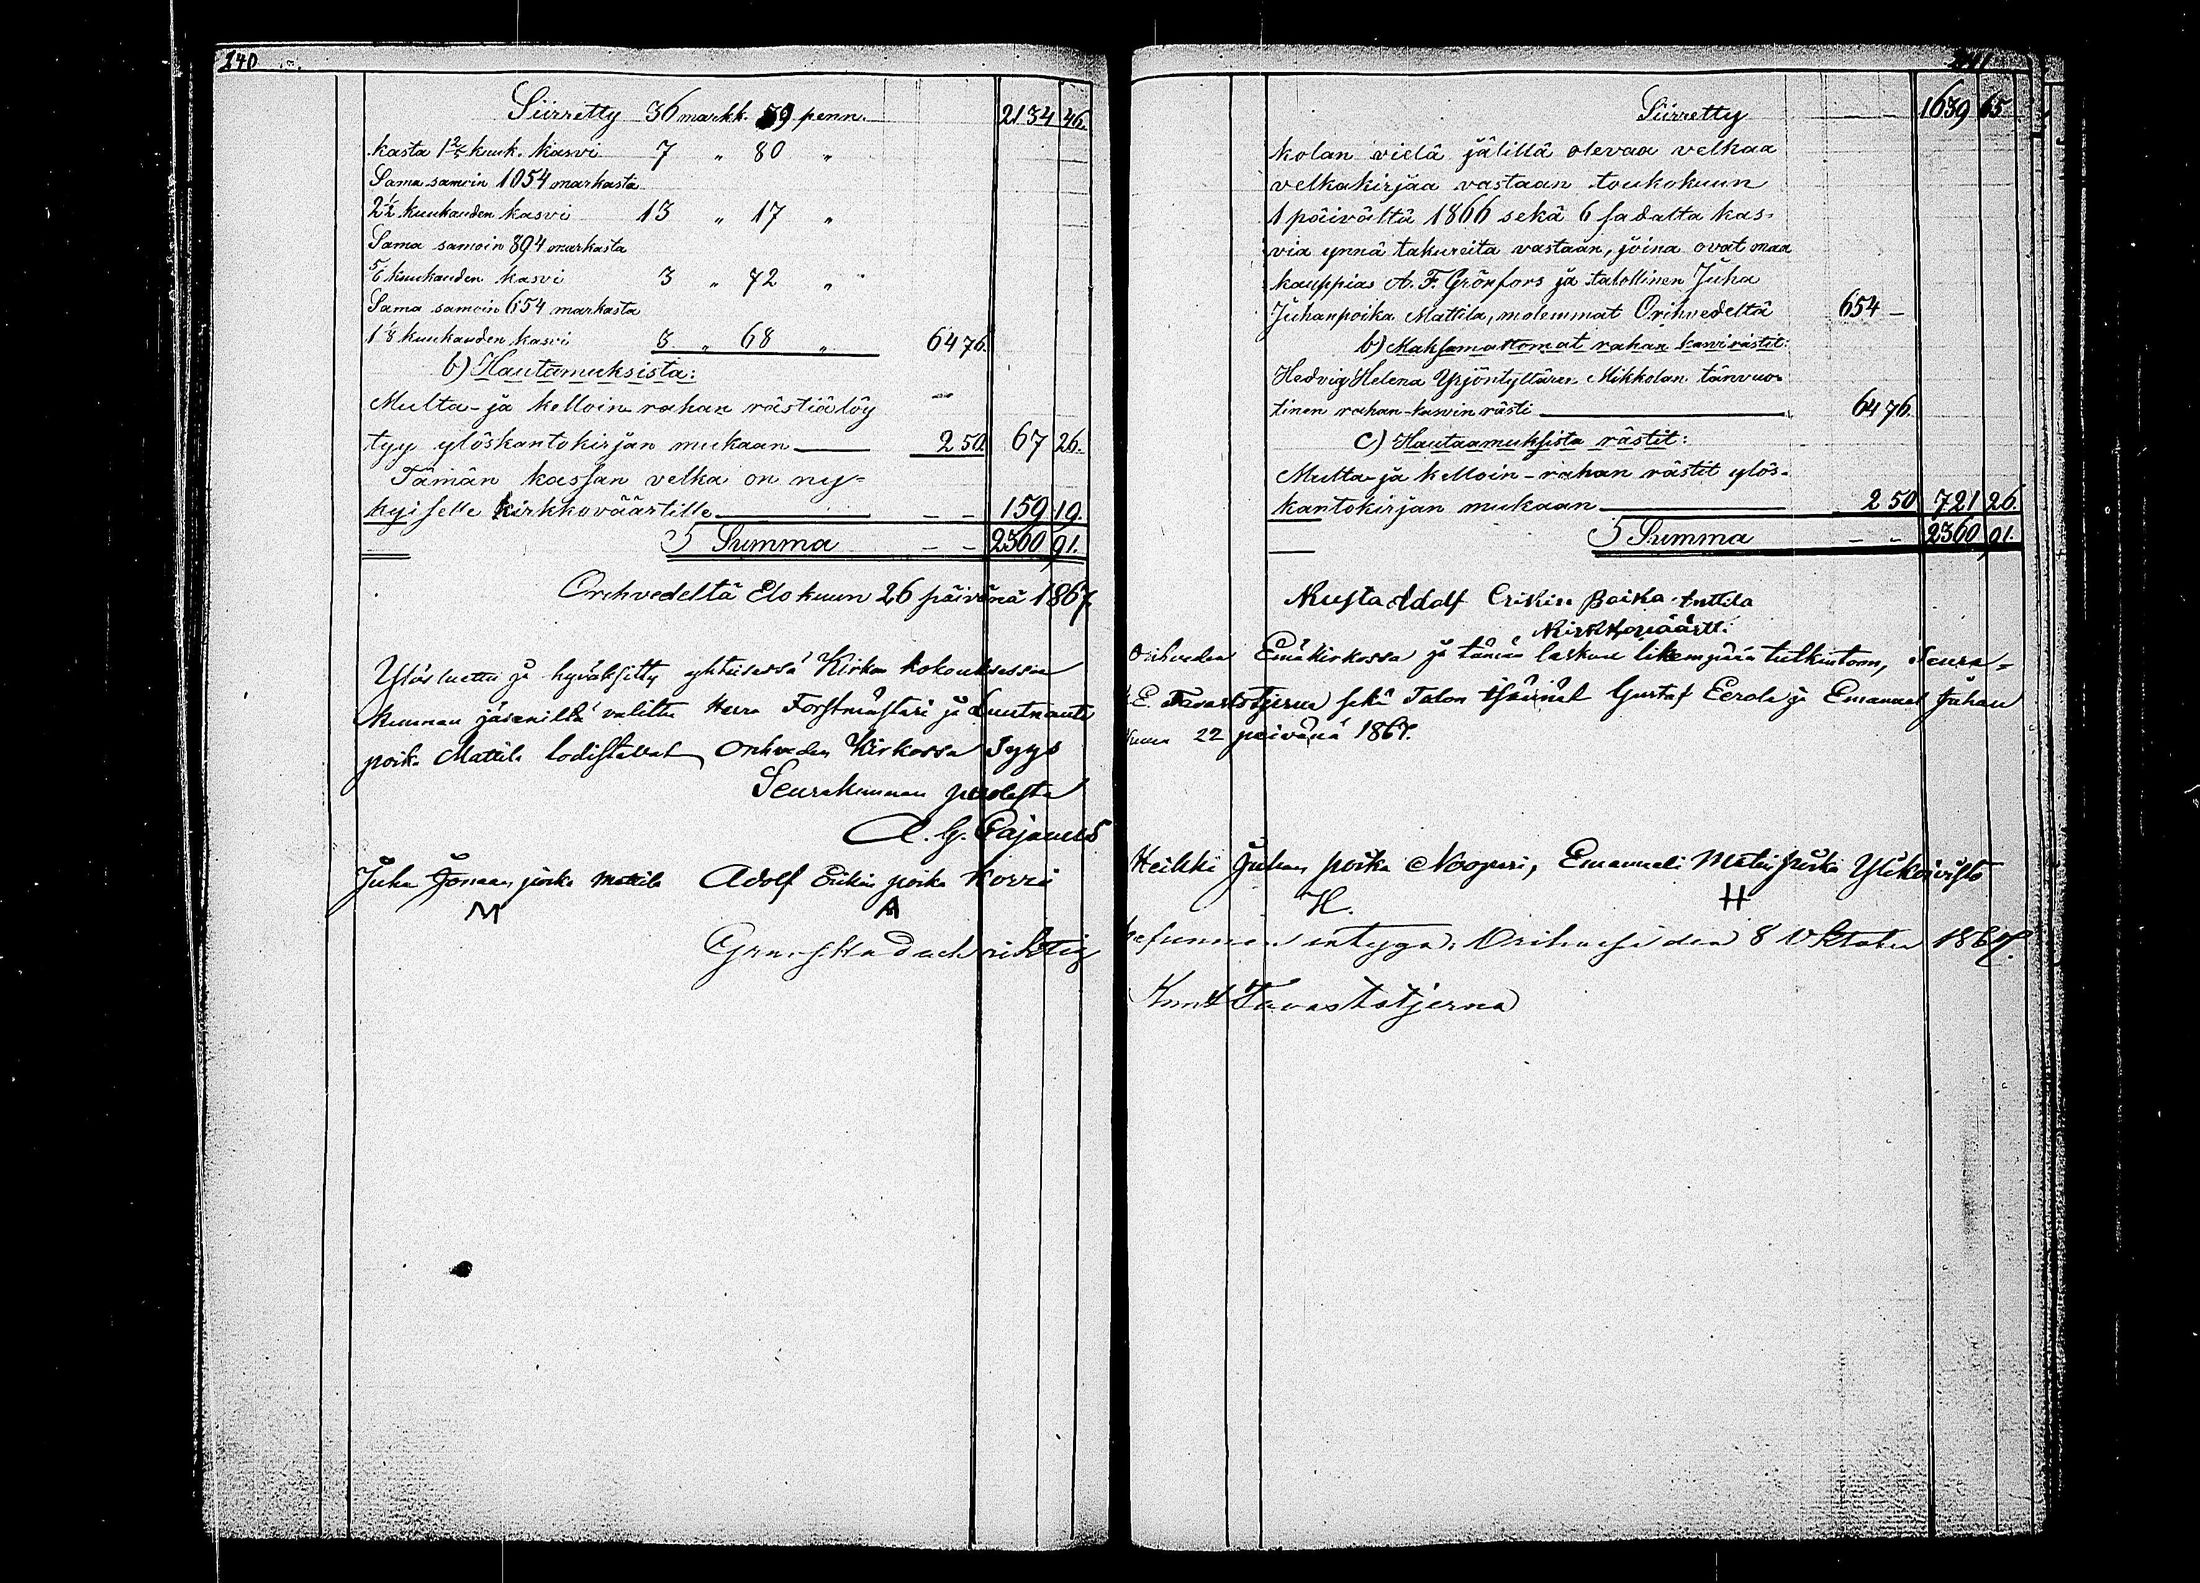 240
Siirretty 36 markk. 59 penn. 2134 46.
kasta 1 2/5 kuuk. kasvi 7 " 80 "
Sama samoin 1054 markasta
2 1/2 kuukauden kasvi 13 " 17 "
Sama samoin 894 markasta
5/6 kuukauden kasvi 3 " 72 "
Sama samoin 654 markasta
kuukauden kasvi 8. " 68 " 64 76.
b) Hautamuksista:
Multa- ja kelloin rahan rästiä löy
tyy ylöskantokirjan mukaan 2 50. 67 26.
Tämän kassan velka on ny-
kyiselle kirkkoväärtille 159 19.
Summa 2360 91.
Orihvedeltä Elokuun 26 päivänä 1867.
Ylösluettu ja hyväksitty yhteisessä Kirkon kokouksessa
kunnan jäseniltä valittu Herra Forstmästari ja Luutnantti
poika Mattila todistavat, Orihveden Kirkossa Syys
Seurakunnan puolesta
A. G. Cajanus
Juha Jonaan poika Mattila Adolf Erikin poika Korri
M A
Granskad och riktig
241
Siirretty 1639 65.
kolan vielä jälillä olevaa velkaa
velkakirjaa vastaan toukokuun
1 päivältä 1866 sekä 6 sadalta kas-
via ynnä takureita vastaan, joina ovat maa
kauppias A. F. Grönfors ja talollinen Juha
Juhanpoika Mattila, molemmat Orihvedeltä 654 –
b) Maksamattomat rahan kasvirästit:
Hedvig Helena Yrjöntyttären Mikkolan tänvuo-
tinen rahan-kasvin rästi 64 76.
c) Hautaamuksista rästit:
Multa- ja kelloin-rahan rästit ylös-
kantokirjan mukaan 2 50 721 26.
Summa 2360 91.
Kusta Adolf Erikin Poika Anttila
Kirkkoväärtti
Orihveden Emäkirkossa ja tämän laskun likempään tutkintoon, Seura-
E. Tavaststjerna sekä Talon Isännät Gustaf Eerola ja Emanuel Juhan
kuun 22 päivänä 1867.
Heikki Juhan poika Nooperi, Emanueli Matin poika Ylikoivisto
H. H
befunnen intygar, Orihvesi den 8 Oktober 1867.
Knut Tavaststjerna